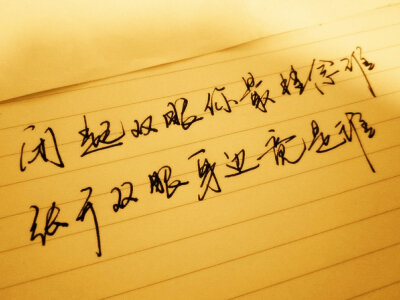 闭起双眼你最挂念谁
张开双眼身边竟是谁